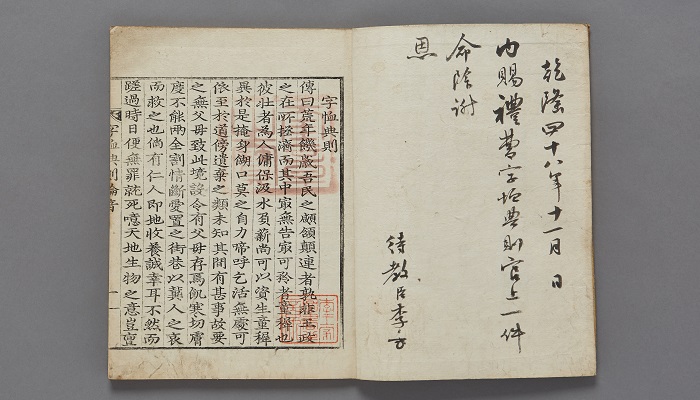 乾隆四十八年十一月 日
內賜禮曹字恤典則官上一件
命除謝
恩
待敎臣李
字恤典則
傳曰荒年饑歲吾民之顑頷顚連者孰非王政
之在所拯濟而其中㝡無告㝡可矜者童穉也
彼壯者爲人傭保汲水負薪尚可以資生童穉
異於是掩身餬口莫之自力啼呼乞活無處可
依至於道傍遺棄之類未知其間有甚事故要
之無父母致此境設令有父母存焉飢寒切膚
度不能兩全割情斷愛置之街巷以冀人之哀
而救之也倘有仁人即地收養誠幸耳不然而
蹉過時日便無罪就死噫天地生物之意豈亶
字恤典則綸音 一